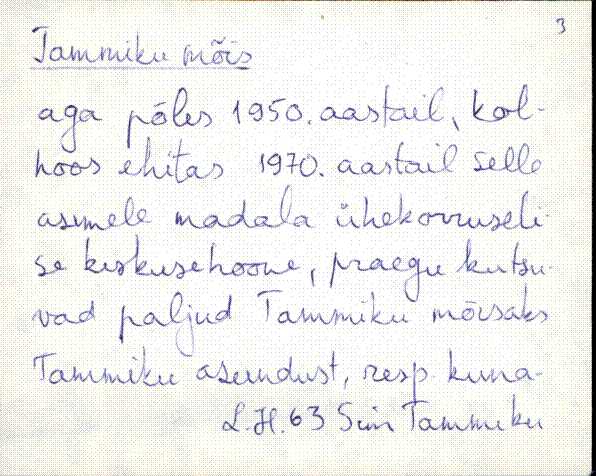 3
Tammiku mõis
aga põles 1950. aastail, kol-
hoos ehitas 1970. aastail selle
asemele madala ühekorruseli-
se keskusehoone, praegu kutsu-
vad paljud Tammiku mõisaks
Tammiku asundust, resp. kuna-
L.H. 63 Sim Tammiku